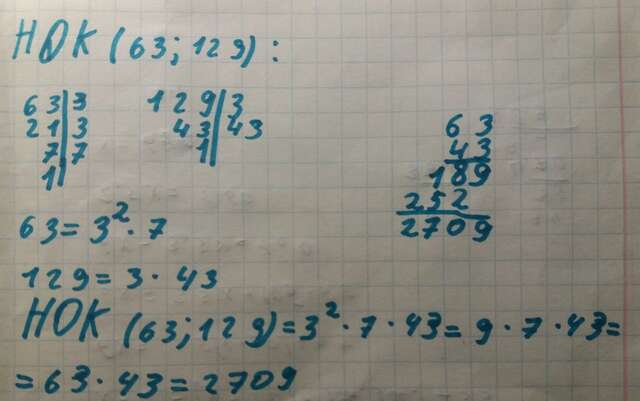 НОК (63; 129) :
63|3
21|3
7|7
1|
129|3
43|43
1|
63
43
189
252
2709
63 = 3² · 7
129 = 3 · 43
НОК (63; 129) = 3² · 7 · 43 = 9 · 7 · 43 =
= 63 · 43 = 2709